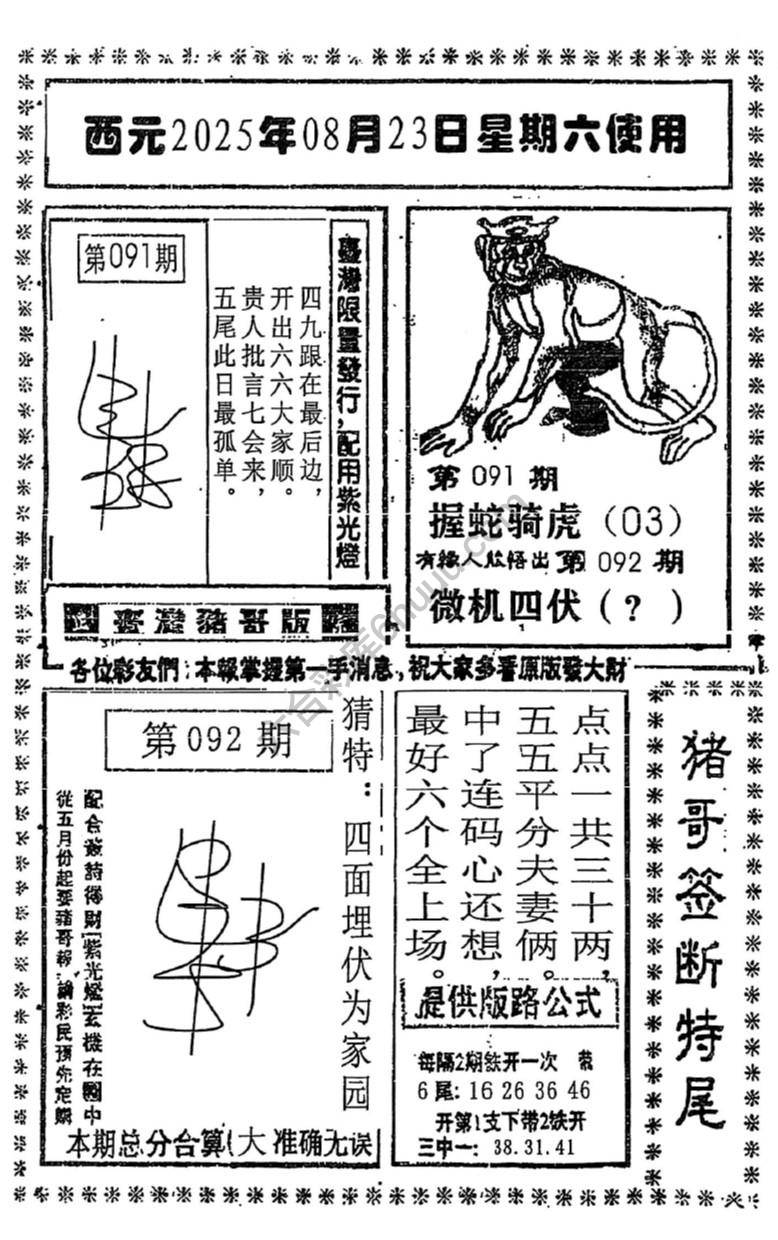 西元2025年08月23日星期六使用
第091期
臺灣限量發行,配用紫光燈
四九跟在最后边,
开出六六大家顺。
贵人批言七会来,
五尾此日最孤单。
第091期
握蛇骑虎(03)
有緣人欣悟出第092期
微机四伏(?)
臺灣豬哥版路
各位彩友們:本報掌握第一手消息,祝大家多看原版發大財
第092期
猜特:四面埋伏为家园
從五月份起要豬哥報
本期总分合算(大 准确无误
点点一共三十两,
五五平分夫妻俩。
中了连码心还想,
最好六个全上场。
提供版路公式
每隔2期铁开一次
6尾:16 26 36 46
开第1支下带2铁开
三中一:38.31.41
猪哥签断特尾
六合彩库6huuu.com